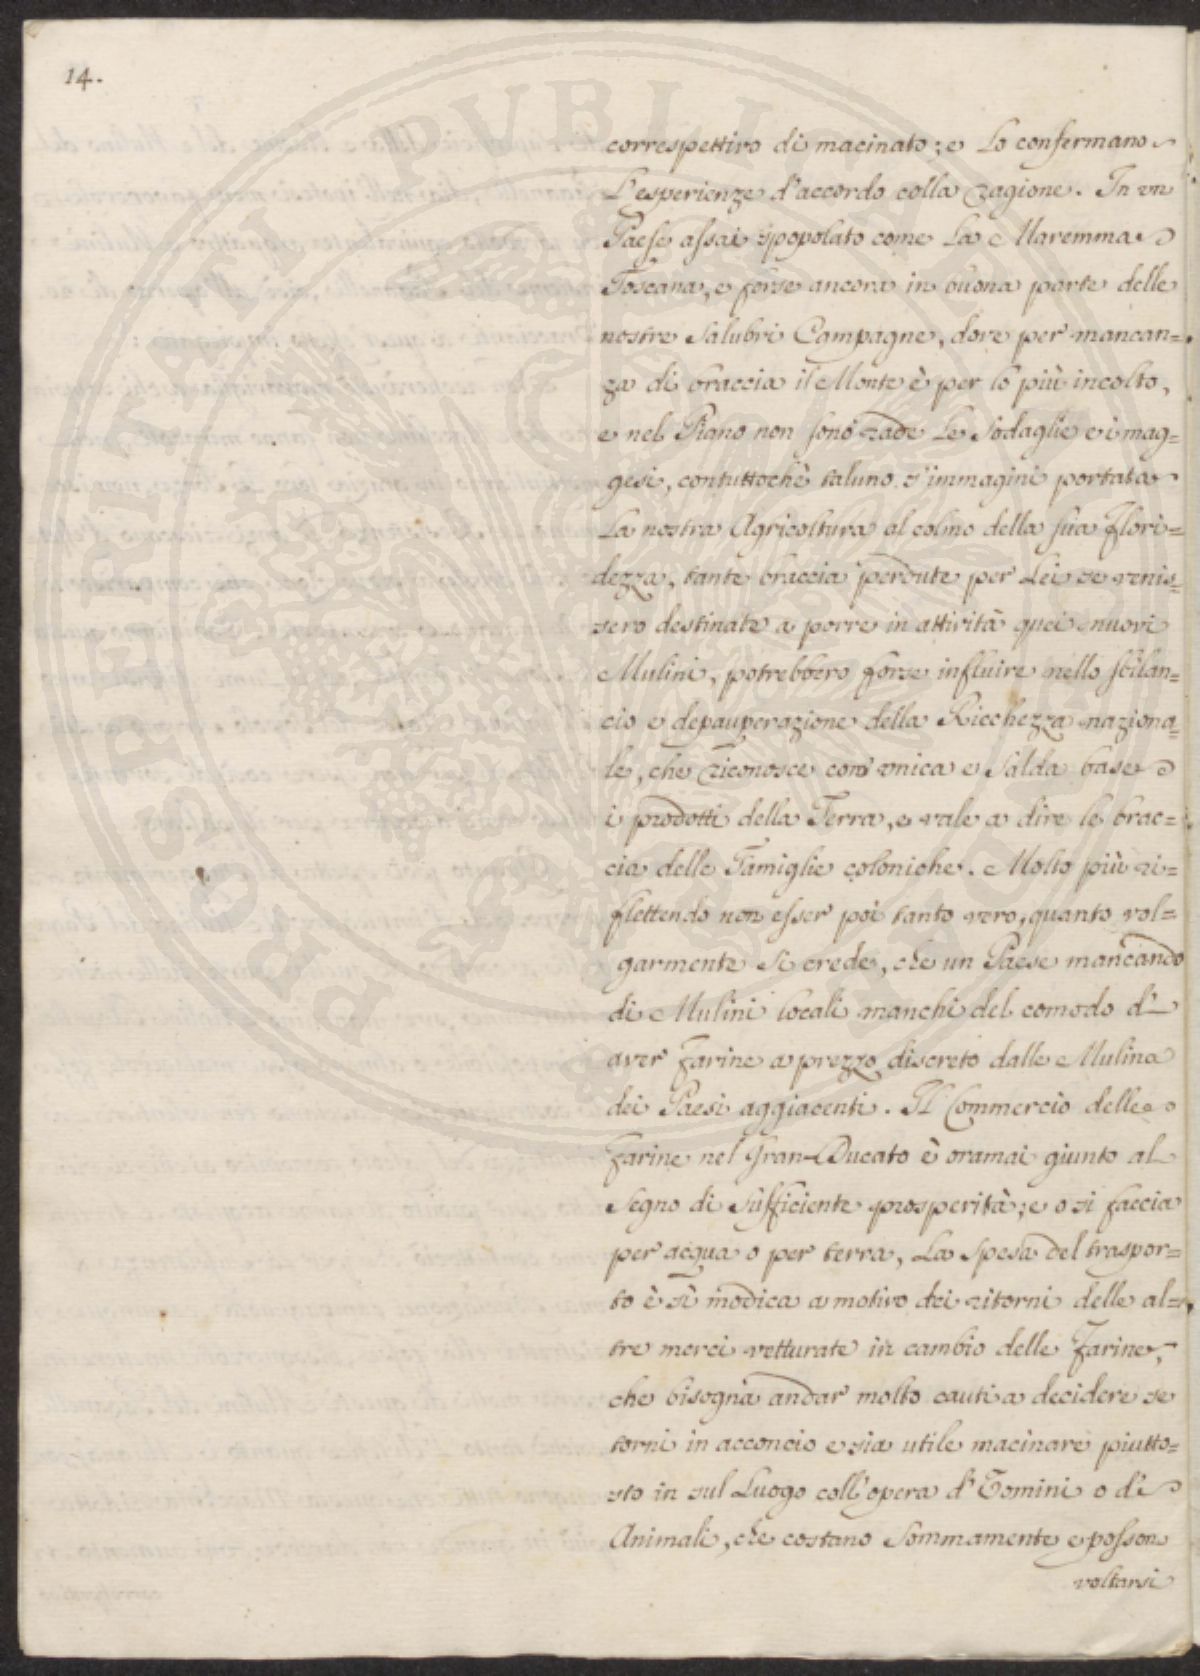 14.
correspettivo di macinato; e lo confermano
L'esperienze d'accordo colla ragione. In un
Paese assai spopolato come La Maremma
Toscana, e forse ancora in buona parte delle
nostre Salubri Campagne, dove per mancan=
za di braccia il Monte è per lo più incolto,
e nel Piano non sono rade Le Sodaglie e i mag=
gesi, contuttochè taluno s'immagini portata
La nostra Agricoltura al colmo della sua Flori=
dezza, tante braccia perdute per Lei se venis=
sero destinate a porre in attività quei nuovi
Mulini, potrebbero forse influire nello sbilan=
cio e depauperazione della Ricchezza naziona=
le, che riconosce com' unica e Salda base
i prodotti della Terra, e vale a dire le brac=
cia delle Famiglie coloniche. Molto più ri=
flettendo non esser poi tanto vero, quanto vol=
garmente si crede, che un Paese mancando
di Mulini locali manchi del comodo d'
aver farine a prezzo discreto dalle Mulina
dei Paesi aggiacenti. Il Commercio delle
farine nel Gran-Ducato è oramai giunto al
Segno di Sufficiente prosperità; e o si faccia
per acqua o per terra, La Spesa del traspor=
to è sì modica a motivo dei ritorni delle al=
tre merci vetturate in cambio delle Farine,
che bisogna andar molto cauti a decidere se
torni in acconcio e sia utile macinare piutto=
sto in sul Luogo coll'opera d'Uomini o di
Animali, che costano Sommamente e posson
voltarsi
PROSPERITATI PVBLICAE